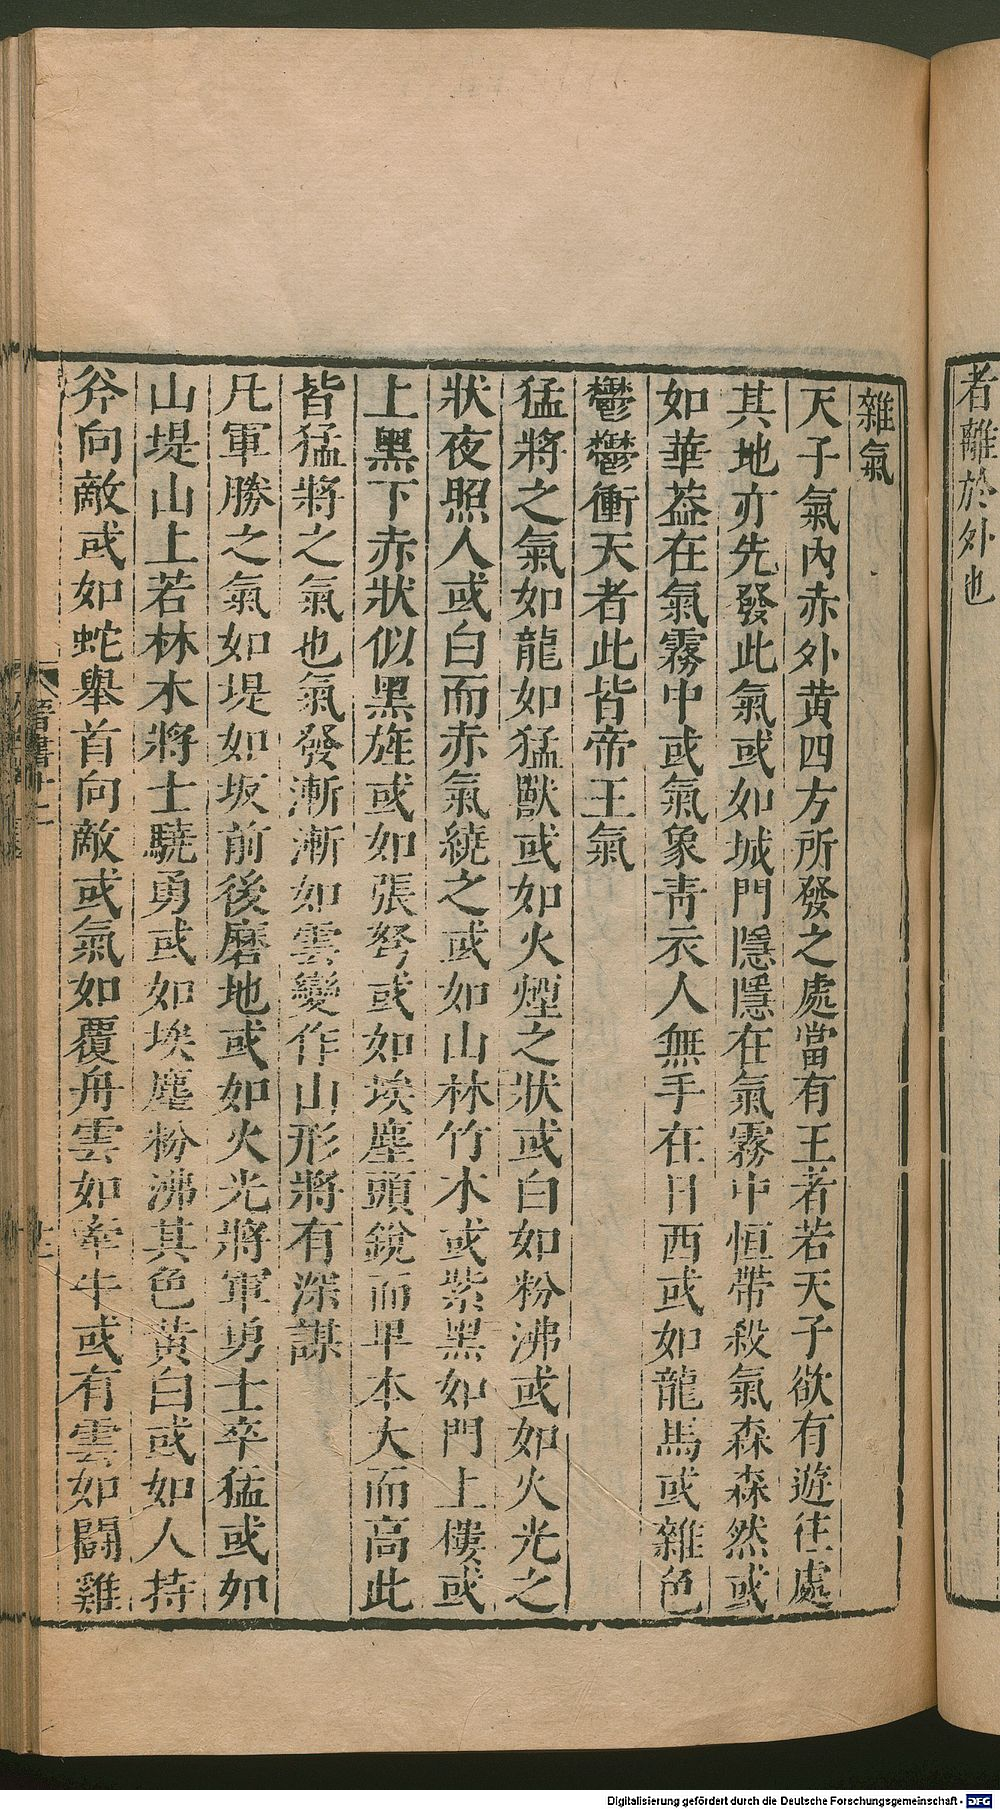 者離於外也
雜氣
天子氣內赤外黄四方所發之處當有王者若天子欲有遊往處
其地亦先發此氣或如城門隱隱在氣霧中恒帶殺氣森森然或
如華葢在氣霧中或氣象青衣人無手在日西或如龍馬或雜色
鬱鬱衝天者此皆帝王氣
猛將之氣如龍如猛獸或如火煙之狀或白如粉沸或如火光之
狀夜照人或白而赤氣繞之或如山林竹木或紫黑如門上樓或
上黑下赤狀似黑旌或如張弩或如埃塵頭銳而卑本大而高此
皆猛將之氣也氣發漸漸如雲變作山形將有深謀
凡軍勝之氣如堤如坂前後磨地或如火光將軍勇士卒猛或如
山堤山上若林木將士驍勇或如埃塵粉沸其色黄白或如人持
斧向敵或如蛇舉首向敵或氣如覆舟雲如牽牛或有雲如鬭雞
晉書十二
Digitalisierung gefördert durch die Deutsche Forschungsgemeinschaft - DFG